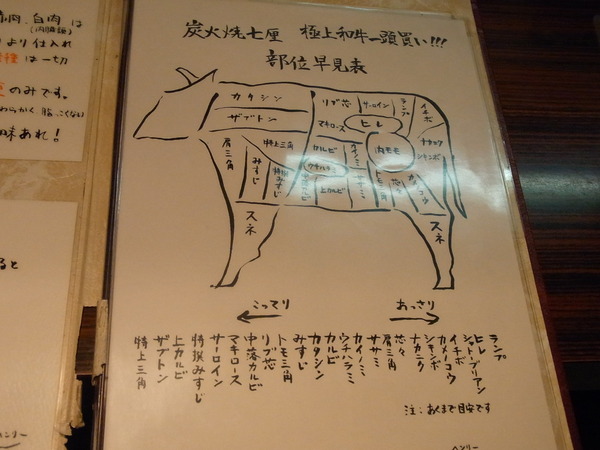 赤肉、白肉 は
(内臓系)
より仕入れ
は一切
のみです。
わらかく 脂っこくない
味あれ!
ると
炭火焼七厘 極上和牛一頭買い!!!
部位早見表
カタシン
ザブトン
リブ芯
サーロイン
ランプ
イチボ
マキロース
ヒレ
肩三角
みすじ
特上三角
特撰みすじ
カルビ
ウチハラミ
中落カルビ
上カルビ
カイノミ
ササミ
内モモ
トモ三角
芯々
カメノコウ
ナカニク
シキンボ
スネ
スネ
こってり
あっさり
ランプ
ヒレ
シャトーブリアン
イチボ
カメノコウ
シキンボ
ナカニク
芯々
肩三角
ササミ
カイノミ
ウチハラミ
カルビ
カタシン
みすじ
トモ三角
リブ芯
中落カルビ
マキロース
サーロイン
特撰みすじ
上カルビ
ザブトン
特上三角
注:あくまで目安です